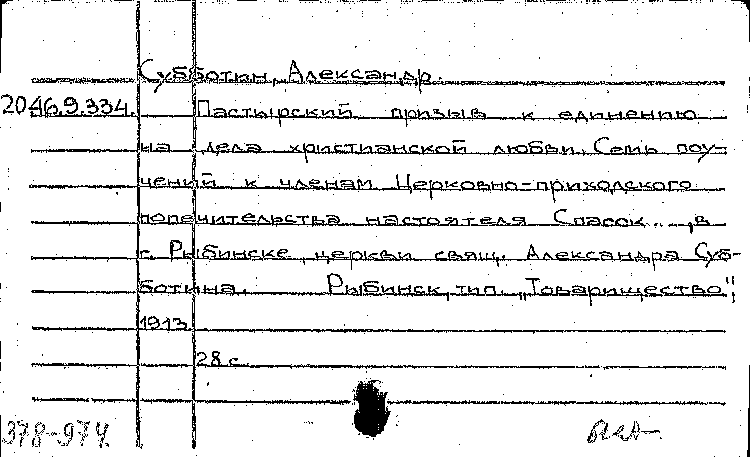 Субботин, Александр.
2046.9.334. Пастырский призыв к единению
на дела христианской любви. Семь поу-
чений к членам Церковно-приходского
попечительства настоятеля Спасск..., в
г. Рыбинске, церкви свящ. Александра Суб-
ботина. Рыбинск, тип. "Товарищество",
1913.
28 с.
378-974.